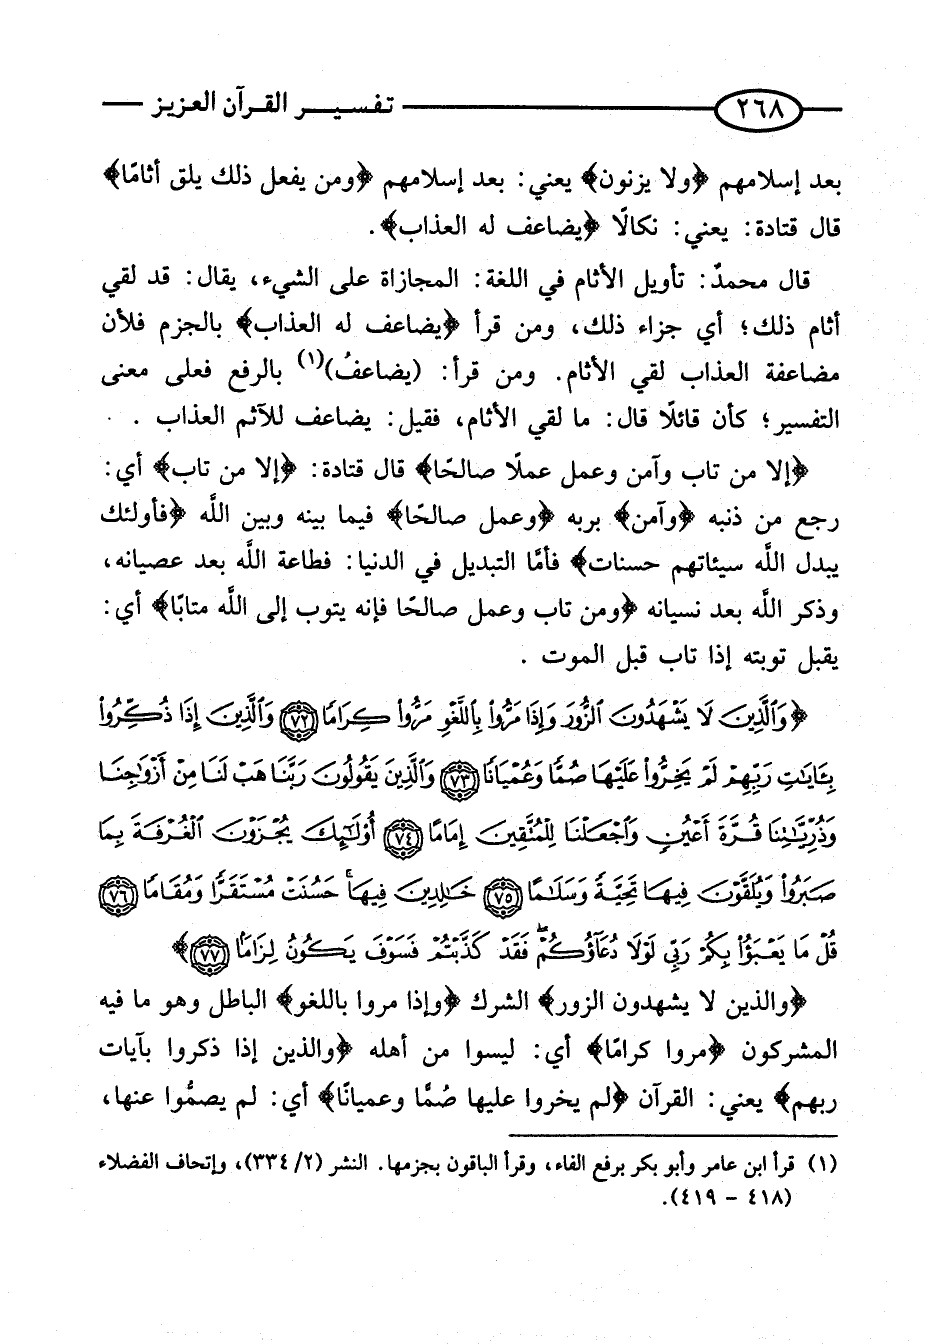 ٢٦٨ تفسير القرآن العزيز
بعد إسلامهم ﴿ولا يزنون﴾ يعني: بعد إسلامهم ﴿ومن يفعل ذلك يلق أثامًا﴾
قال قتادة: يعني: نكالًا ﴿يضاعف له العذاب﴾.
قال محمدٌ: تأويل الأثام في اللغة: المجازاة على الشيء، يقال: قد لقي
أثام ذلك؛ أي جزاء ذلك، ومن قرأ ﴿يضاعف له العذاب﴾ بالجزم فلأن
مضاعفة العذاب لقي الأثام. ومن قرأ: (يضاعفُ)(١) بالرفع فعلى معنى
التفسير؛ كأن قائلًا قال: ما لقي الأثام، فقيل: يضاعف للآثم العذاب .
﴿إلا من تاب وآمن وعمل عملًا صالحًا﴾ قال قتادة: ﴿إلا من تاب﴾ أي:
رجع من ذنبه ﴿وآمن﴾ بربه ﴿وعمل صالحًا﴾ فيما بينه وبين اللَّه ﴿فأولئك
يبدل اللَّه سيئاتهم حسنات﴾ فأمَّا التبديل في الدنيا: فطاعة اللَّه بعد عصيانه،
وذكر اللَّه بعد نسيانه ﴿ومن تاب وعمل صالحًا فإنه يتوب إلى اللَّه متابًا﴾ أي:
يقبل توبته إذا تاب قبل الموت .
﴿وَٱلَّذِينَ لَا يَشْهَدُونَ ٱلزُّورَ وَإِذَا مَرُّوا۟ بِٱللَّغْوِ مَرُّوا۟ كِرَامًا ٧٢ وَٱلَّذِينَ إِذَا ذُكِّرُوا۟
بِـَٔايَـٰتِ رَبِّهِمْ لَمْ يَخِرُّوا۟ عَلَيْهَا صُمًّا وَعُمْيَانًا ٧٣ وَٱلَّذِينَ يَقُولُونَ رَبَّنَا هَبْ لَنَا مِنْ أَزْوَٰجِنَا
وَذُرِّيَّـٰتِنَا قُرَّةَ أَعْيُنٍ وَٱجْعَلْنَا لِلْمُتَّقِينَ إِمَامًا ٧٤ أُو۟لَـٰٓئِكَ يُجْزَوْنَ ٱلْغُرْفَةَ بِمَا
صَبَرُوا۟ وَيُلَقَّوْنَ فِيهَا تَحِيَّةً وَسَلَـٰمًا ٧٥ خَـٰلِدِينَ فِيهَا ۚ حَسُنَتْ مُسْتَقَرًّا وَمُقَامًا ٧٦
قُلْ مَا يَعْبَؤُا۟ بِكُمْ رَبِّى لَوْلَا دُعَآؤُكُمْ ۖ فَقَدْ كَذَّبْتُمْ فَسَوْفَ يَكُونُ لِزَامًا ٧٧﴾
﴿والذين لا يشهدون الزور﴾ الشرك ﴿وإذا مروا باللغو﴾ الباطل وهو ما فيه
المشركون ﴿مروا كرامًا﴾ أي: ليسوا من أهله ﴿والذين إذا ذكروا بآيات
ربهم﴾ يعني: القرآن ﴿لم يخروا عليها صُمًّا وعميانًا﴾ أي: لم يصمُّوا عنها،
(١) قرأ ابن عامر وأبو بكر برفع الفاء، وقرأ الباقون بجزمها. النشر (٢/ ٣٣٤)، وإتحاف الفضلاء
(٤١٨ - ٤١٩).